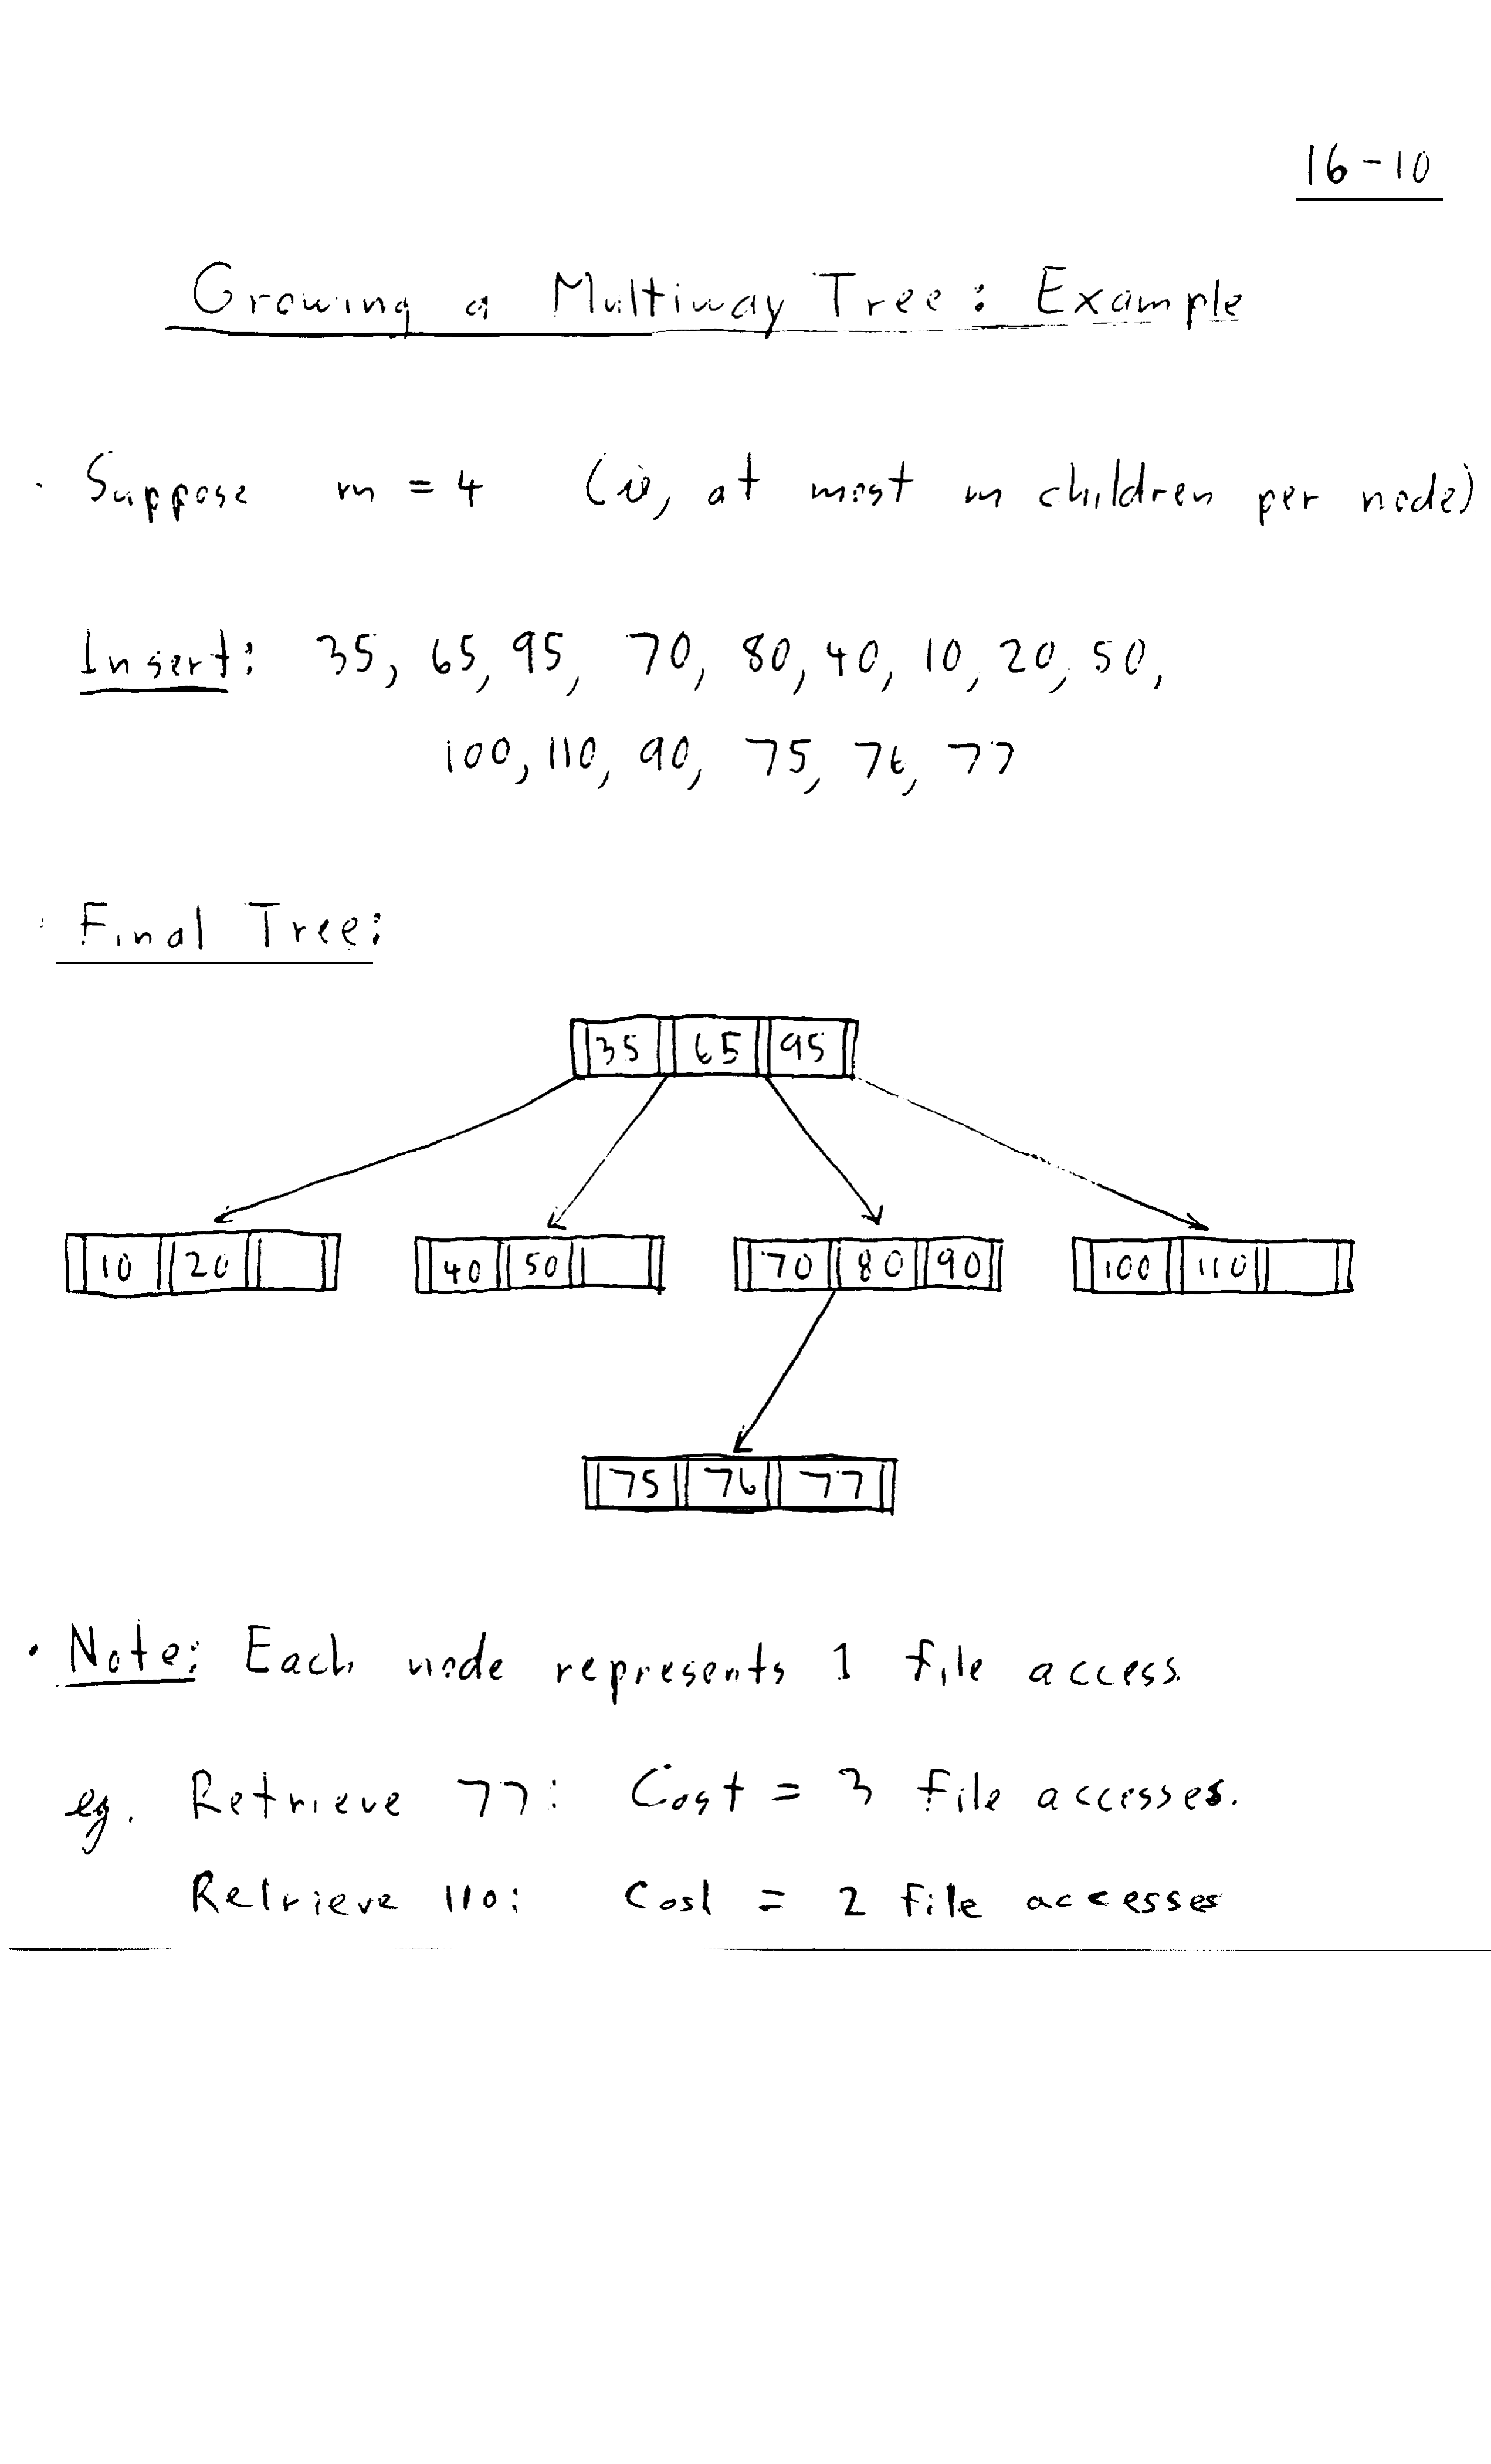 16-10
Growing a Multiway Tree: Example
· Suppose m = 4 (ie, at most m children per node)
Insert: 35, 65, 95, 70, 80, 40, 10, 20, 50,
100, 110, 90, 75, 76, 77
· Final Tree:
35 65 95
10 20 40 50 70 80 90 100 110
75 76 77
· Note: Each node represents 1 file access.
eg. Retrieve 77: Cost = 3 file accesses.
Retrieve 110: Cost = 2 file accesses